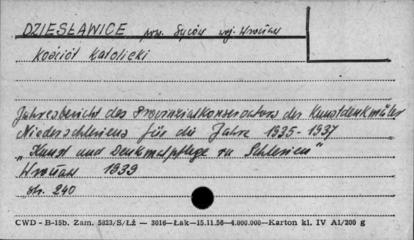 DZIESŁAWICE pow. Syców woj. Wrocław
Kościół Katolicki
Jahresbericht des Provinzialkonservators der Kunstdenkmäler
Niederschlesiens für die Jahre 1935-1937
„Kunst und Denkmalpflege in Schlesien"
Wrocław 1939
str. 240
CWD - B-15b. Zam. 5823/S/ŁŻ — 3016—Łak—15.11.56—4.000.000—Karton kl. IV A1/200 g